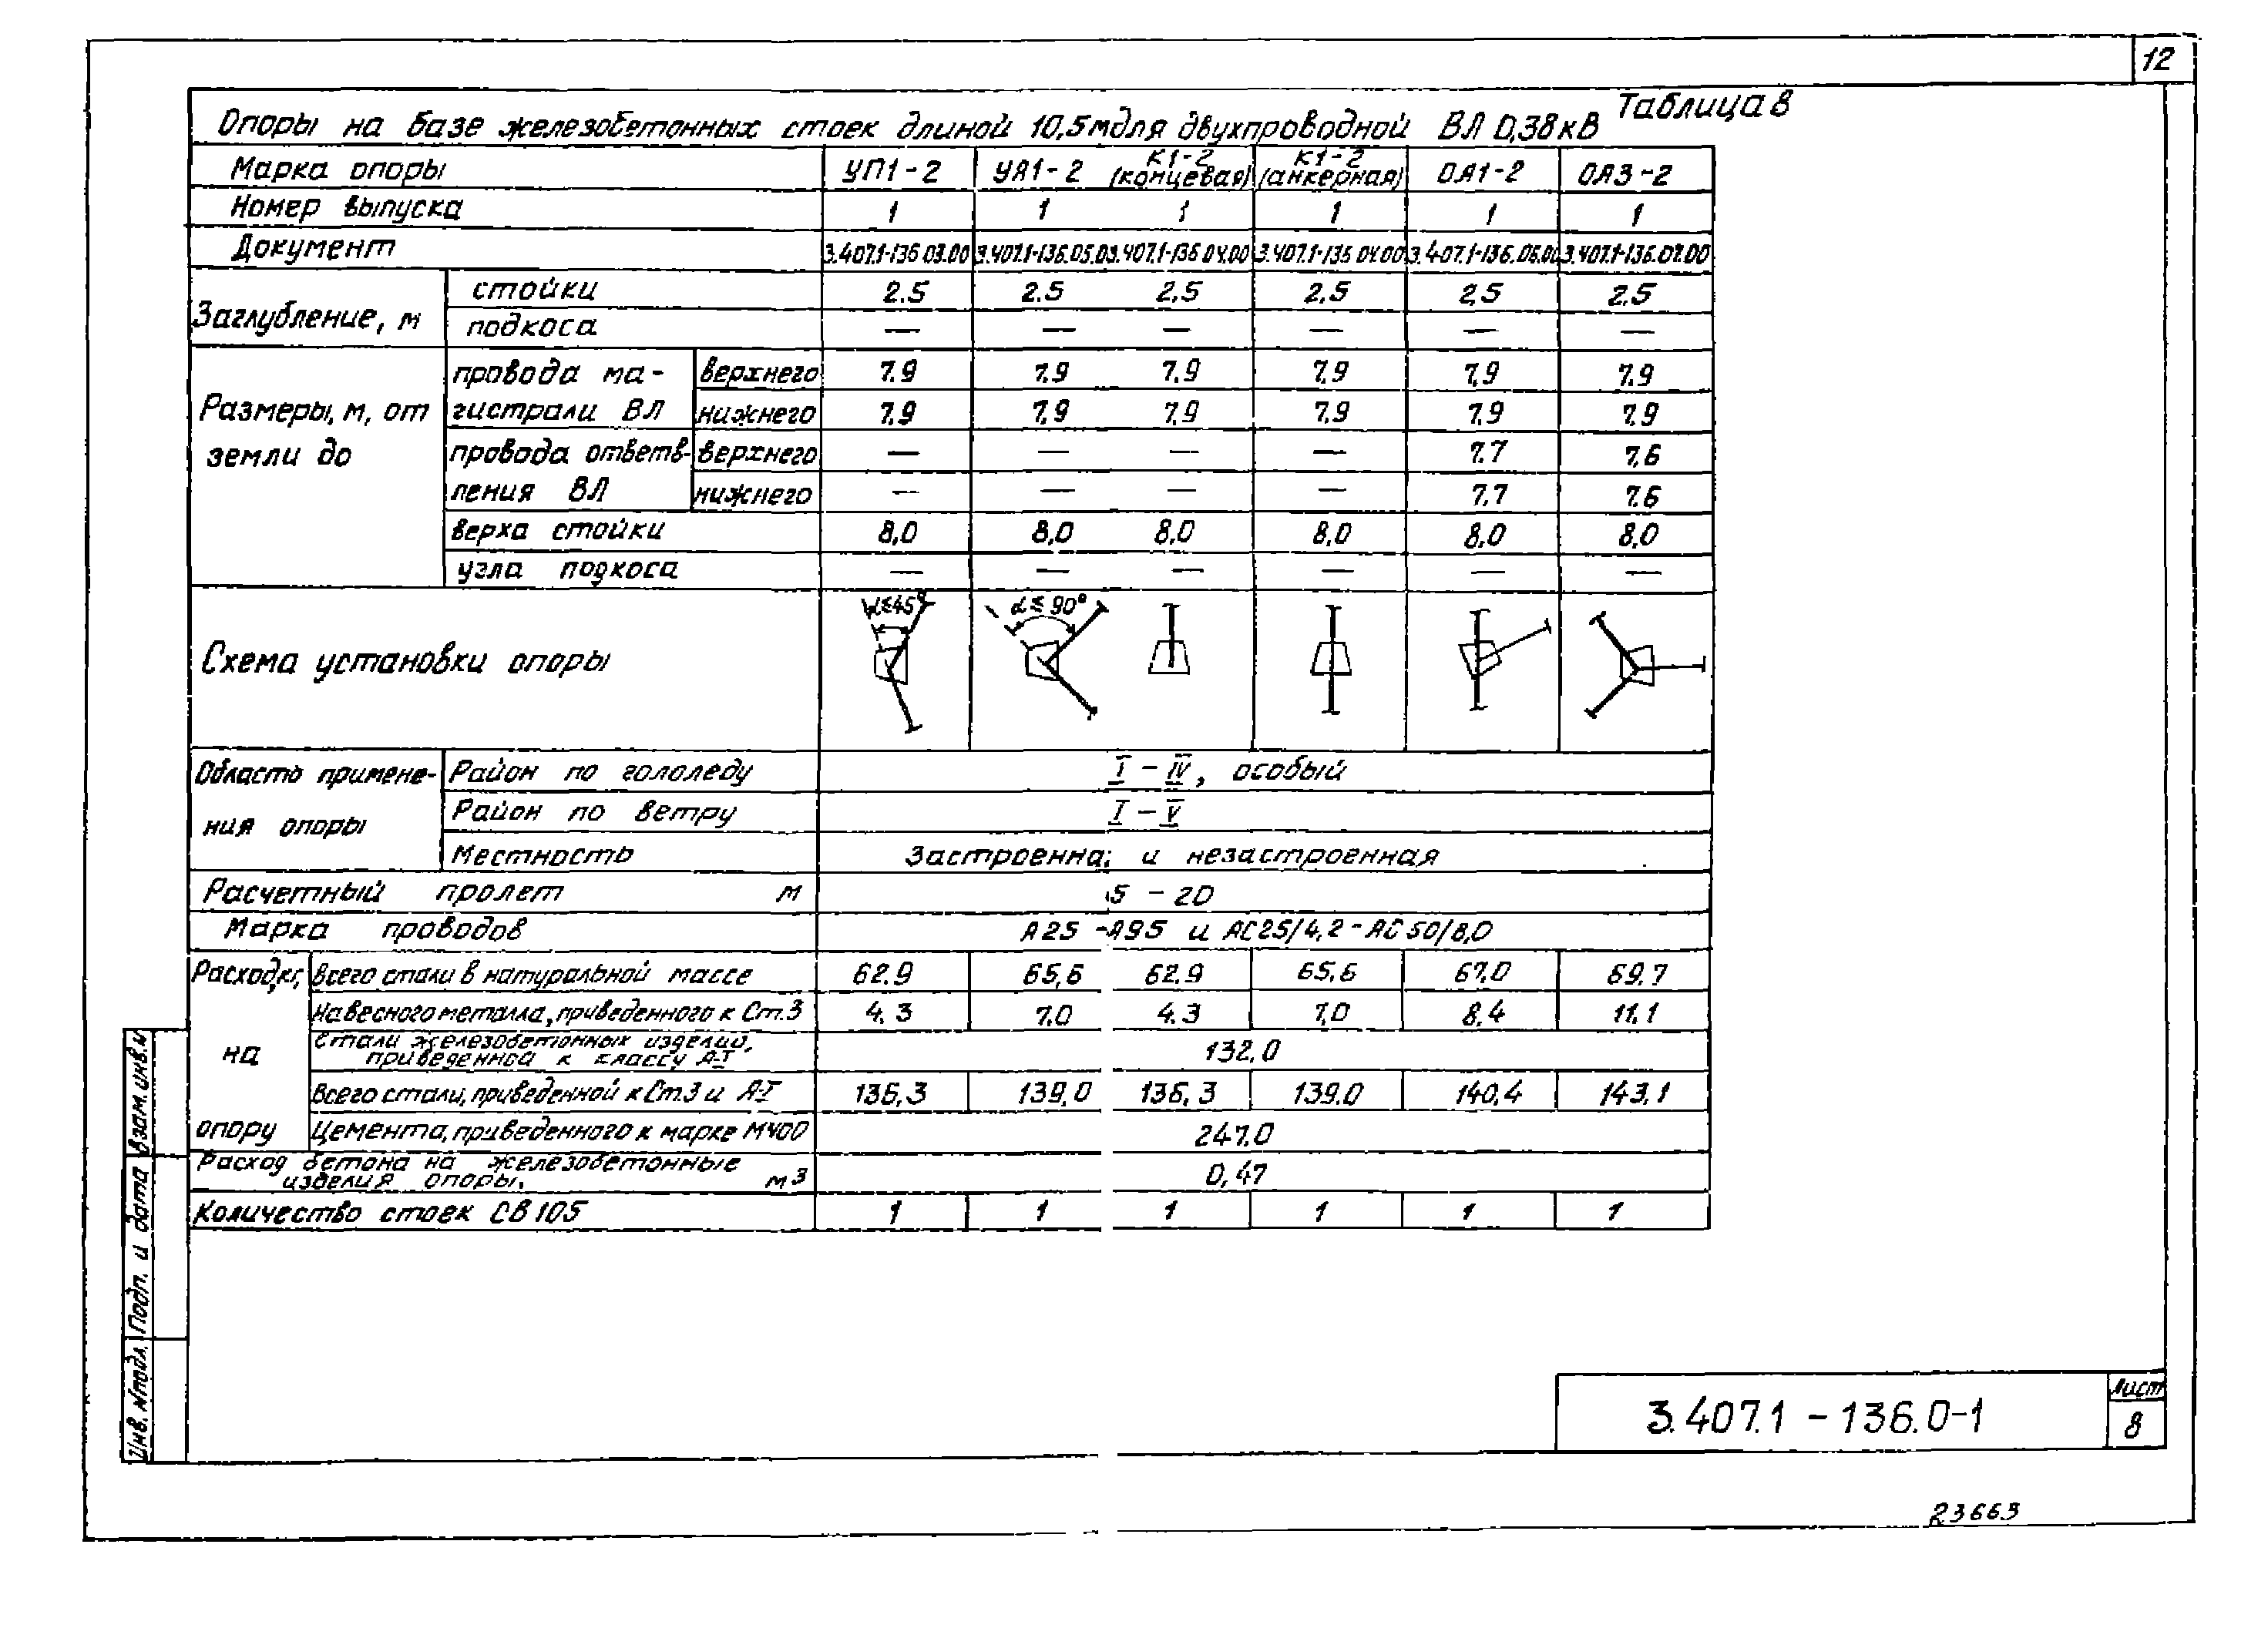 12
Таблица 8
Опоры на базе железобетонных стоек длиной 10,5м для двухпроводной ВЛ 0,38кВ
Марка опоры УП1-2 УА1-2 К1-2 (концевая) К1-2 (анкерная) ОА1-2 ОА3-2
Номер выпуска 1 1 1 1 1 1
Документ 3.407.1-136.03.00 3.407.1-136.05.0 3.407.1-136.04.00 3.407.1-136.04.00 3.407.1-136.06.00 3.407.1-136.07.00
Заглубление, м стойки 2.5 2.5 2,5 2,5 2,5 2.5
подкоса — — — — — —
Размеры, м, от земли до
провода магистрали ВЛ верхнего 7.9 7.9 7,9 7,9 7,9 7,9
нижнего 7.9 7,9 7,9 7.9 7.9 7,9
провода ответвления ВЛ верхнего — — — — 7.7 7,6
нижнего — — — — 7,7 7,6
верха стойки 8,0 8,0 8,0 8,0 8,0 8,0
узла подкоса — — — — — —
Схема установки опоры α≤45° α≤90°
Область применения опоры Район по гололеду I – IV, особый
Район по ветру I – V
Местность Застроенна; и незастроенная
Расчетный пролет м 5 – 20
Марка проводов А25 -А95 и АС25/4,2 - АС50/8,0
Расход,кг, на опору
Всего стали в натуральной массе 62.9 65,6 62.9 65,6 67,0 69.7
Навесного металла, приведенного к Ст.3 4.3 7.0 4.3 7,0 8,4 11.1
Стали железобетонных изделий, приведенной к классу А-I 132.0
Всего стали, приведенной к Ст.3 и А-I 136,3 139,0 136,3 139.0 140,4 143,1
Цемента, приведенного к марке М400 247.0
Расход бетона на железобетонные изделия опоры, м3 0,47
Количество стоек СВ105 1 1 1 1 1 1
Взам. инв.№
Подп. и дата
Инв. №подл.
3.407.1 - 136.0-1
Лист
8
23663